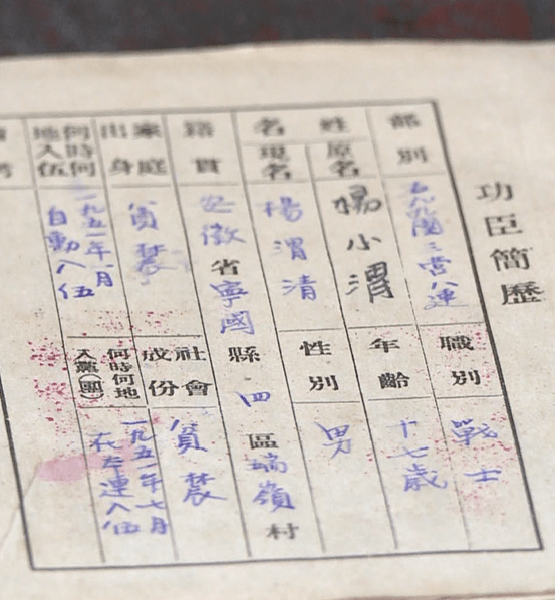 功臣簡歷
部別
五九九團三營八連
職別
戰士
姓名
原名
楊小渭
現名
楊渭清
年齡
十七歲
性別
男
籍貫
安徽省寧國縣四區瑞嶺村
家庭出身
貧農
社會成份
貧農
何時何地入伍
一九五一年一月
自動入伍
何時何地入黨(團)
一九五一年七月
在本連入伍